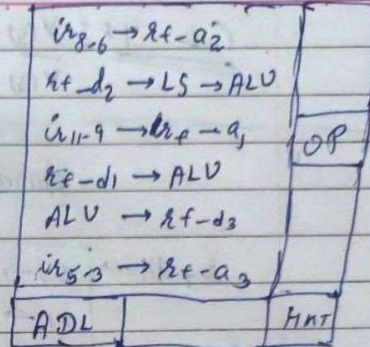 ir8-6 → rf-a2
rf-d2 → LS → ALU
ir11-9 → rf-a1
rf-d1 → ALU
ALU → rf-d3
ir5-3 → rf-a3
OP
ADL